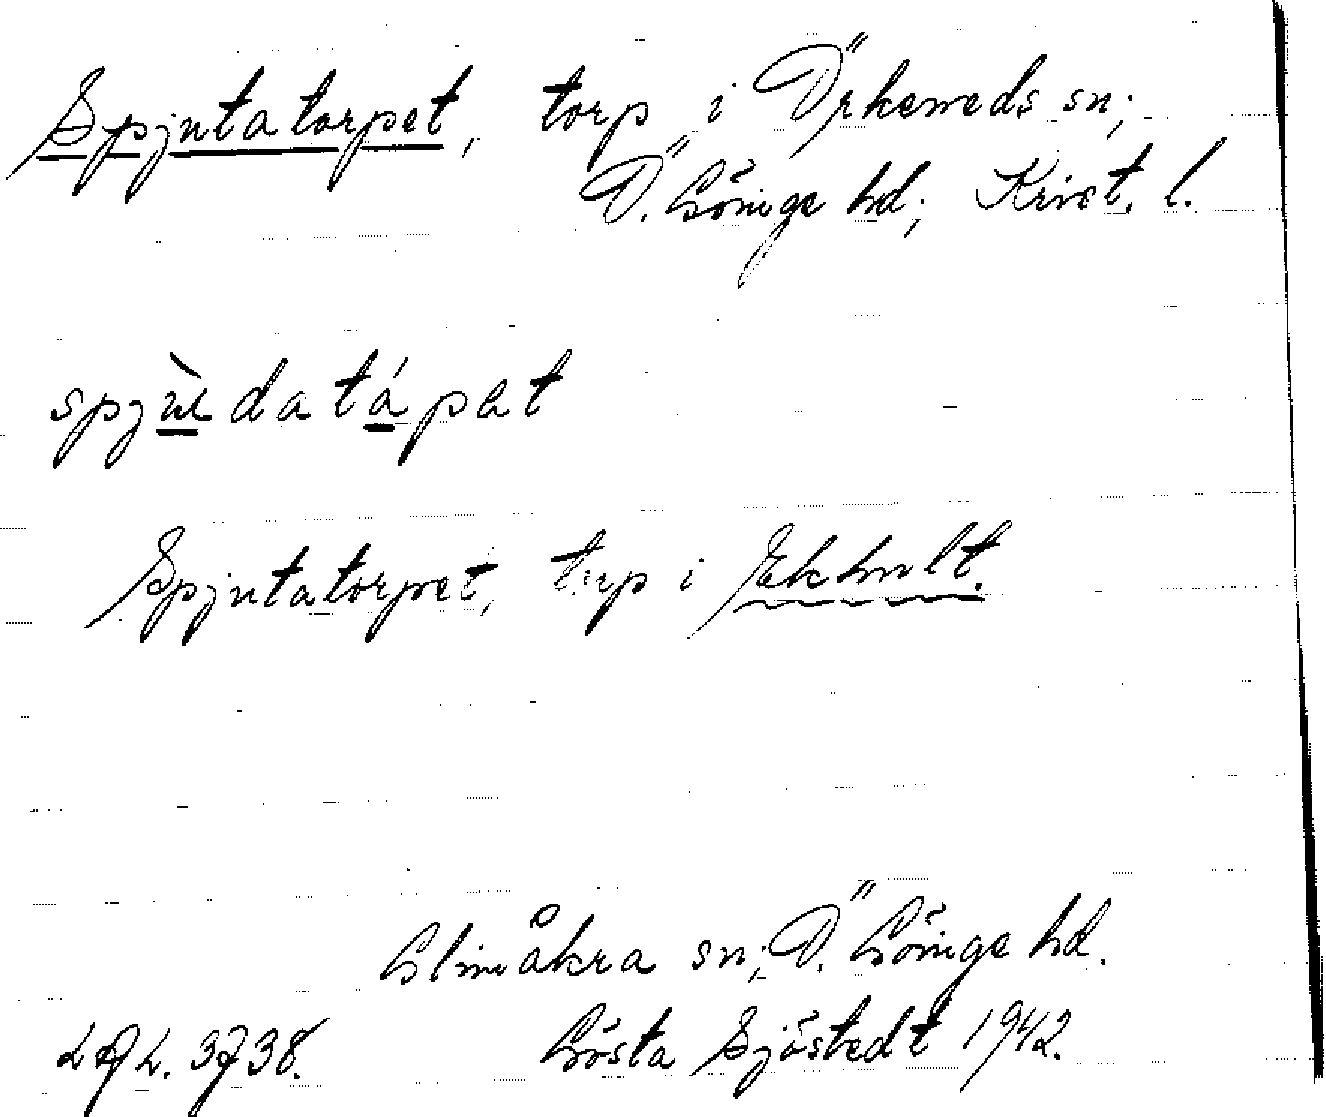 Spjutatorpet, torp i Örkeneds sn;
Ö. Göinge hd; Krist. l.
spjùdatápat
Spjutatorpet, torp i Ekhult.
Glimåkra sn; Ö. Göinge hd.
Gösta Sjöstedt 1942.